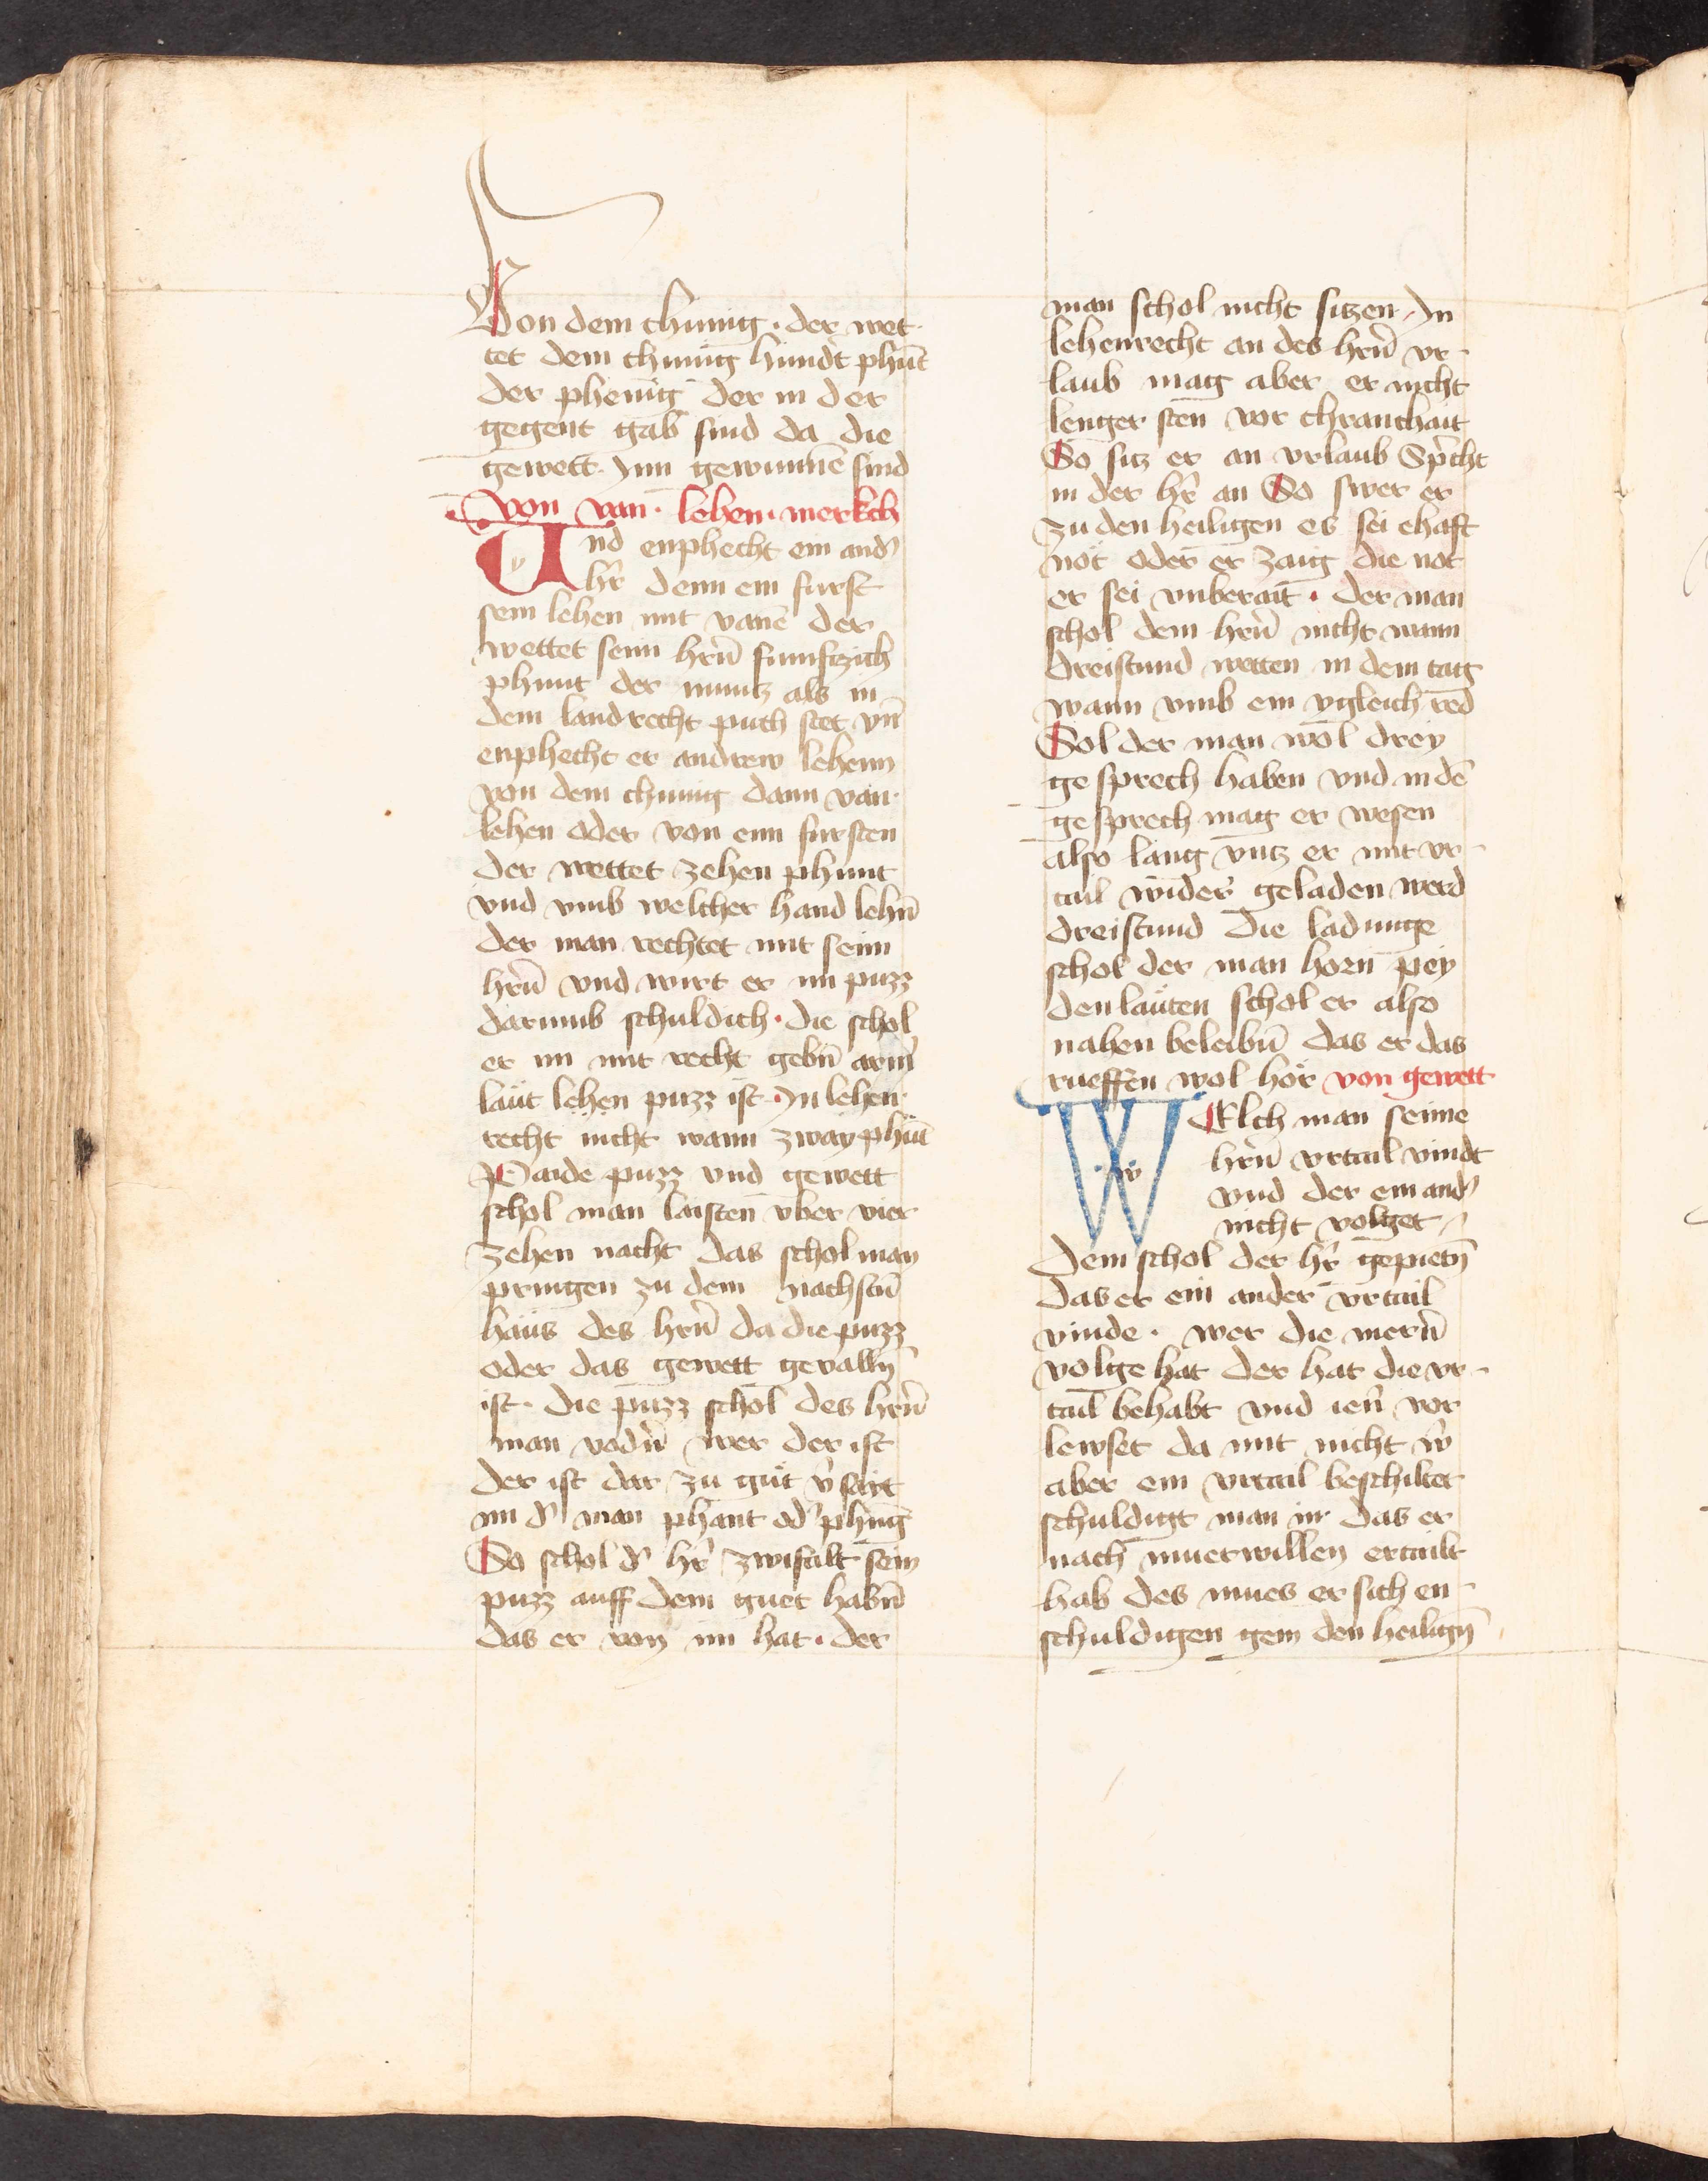 Von dem chunig · der wet-
tet dem chunig hundt phūt
der phenig der in der
gegent gāb sind da die
gewett · ynn gewunnē sind
von van · lehen · merkch
Und enphecht ein and'
hr̄ denn ein furst
sein lehen mit vanē der
wettet seim hrn̄ funfczich
phunt der muncz als in
dem landrecht puch stet vn̄
enphecht er andrew lehenn
von dem chunig dann van-
lehen oder von ein fursten
der wettet zehen phunt
vnd vmb welcher hand lehn̄
der man rechtet mit seim
hrn̄ vnd wirt er im puzz
darumb schuldich · die schol
er im mit recht gebn̄ arm̄
laüt lehen puzz ist · In lehen-
recht nicht wann zway phūt
Paide puzz vnd gewett
schol man laisten vber vier
zehen nacht das schol man
pringen zu dem nachstn̄
haüs des hrn̄ da die puzz
oder das gewett gevalln̄
ist · die puzz schol des hrn̄
man vodn̄ wer der ist
der ist dar zu güt v̄sait
im d' man phant od' phn̄g
So schol d' hr̄ zwifalt sein
puzz auff dem guet habn̄
das er von im hat · der
man schol nicht sitzen · In
lehenrecht an des hrn̄ vr-
laub mag aber er nicht
lenger sten vor chranchait
So sitz er an vrlaub Sp̄icht
in der hr̄ an So swer er
zu den heiligen es sei ehaft
not oder er zaig die not
er sei vnberait · der man
schol dem hrn̄ nicht wann
dreistund wetten in dem tag
wann vmb ein ygleich red
Sol der man wol drey
gesprech haben vnd in dē
gesprech mag er wesen
also lang vntz er mit vr-
tail wider geladen werd
dreistund die ladunge
schol der man horn̄ pey
den laüten schol er also
nahen beleibn̄ das er das
rueffen wol hör von gewett
WElch man seime
hrn̄ vrtail vindt
vnd der ein and'
nicht volget
dem schol der hr̄ gepietn̄
das er ein ander vrtail
vinde · wer die mern̄
volge hat der hat die vr-
tail behabt vnd ien̄ vor
lewset da mit nicht w̄
aber ein vrtail beschiltet
schuldigt man in das er
nach muerwillen ertailt
hab des mues er sich en-
schuldigen gein den heilign̄